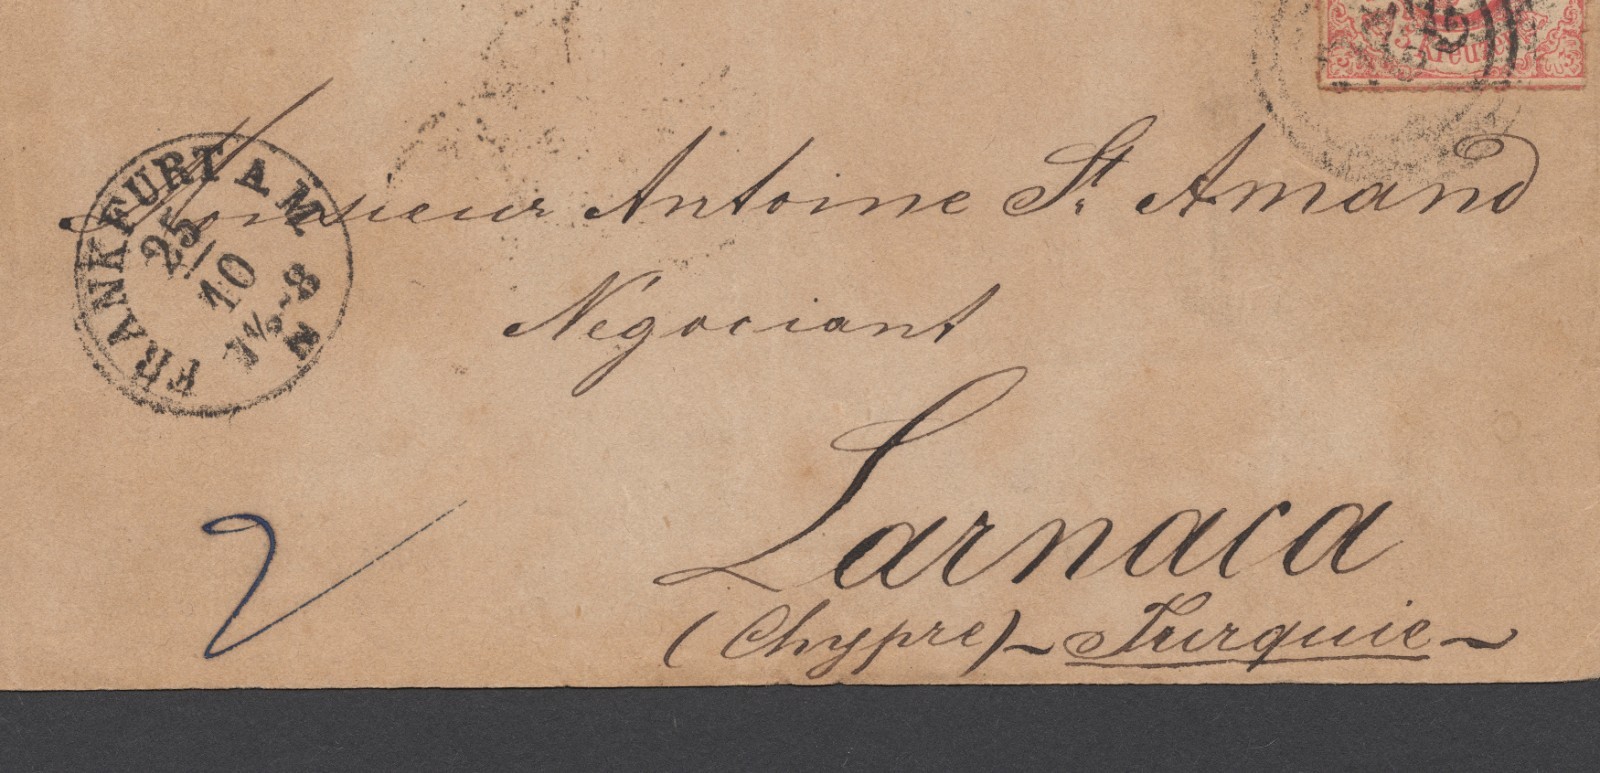 3 Kreuz
FRANKFURT A. M.
25/10
8-
N.
Monsieur Antoine St. Amand
Negociant
Larnaca
(Chypre) - Turquie -
2